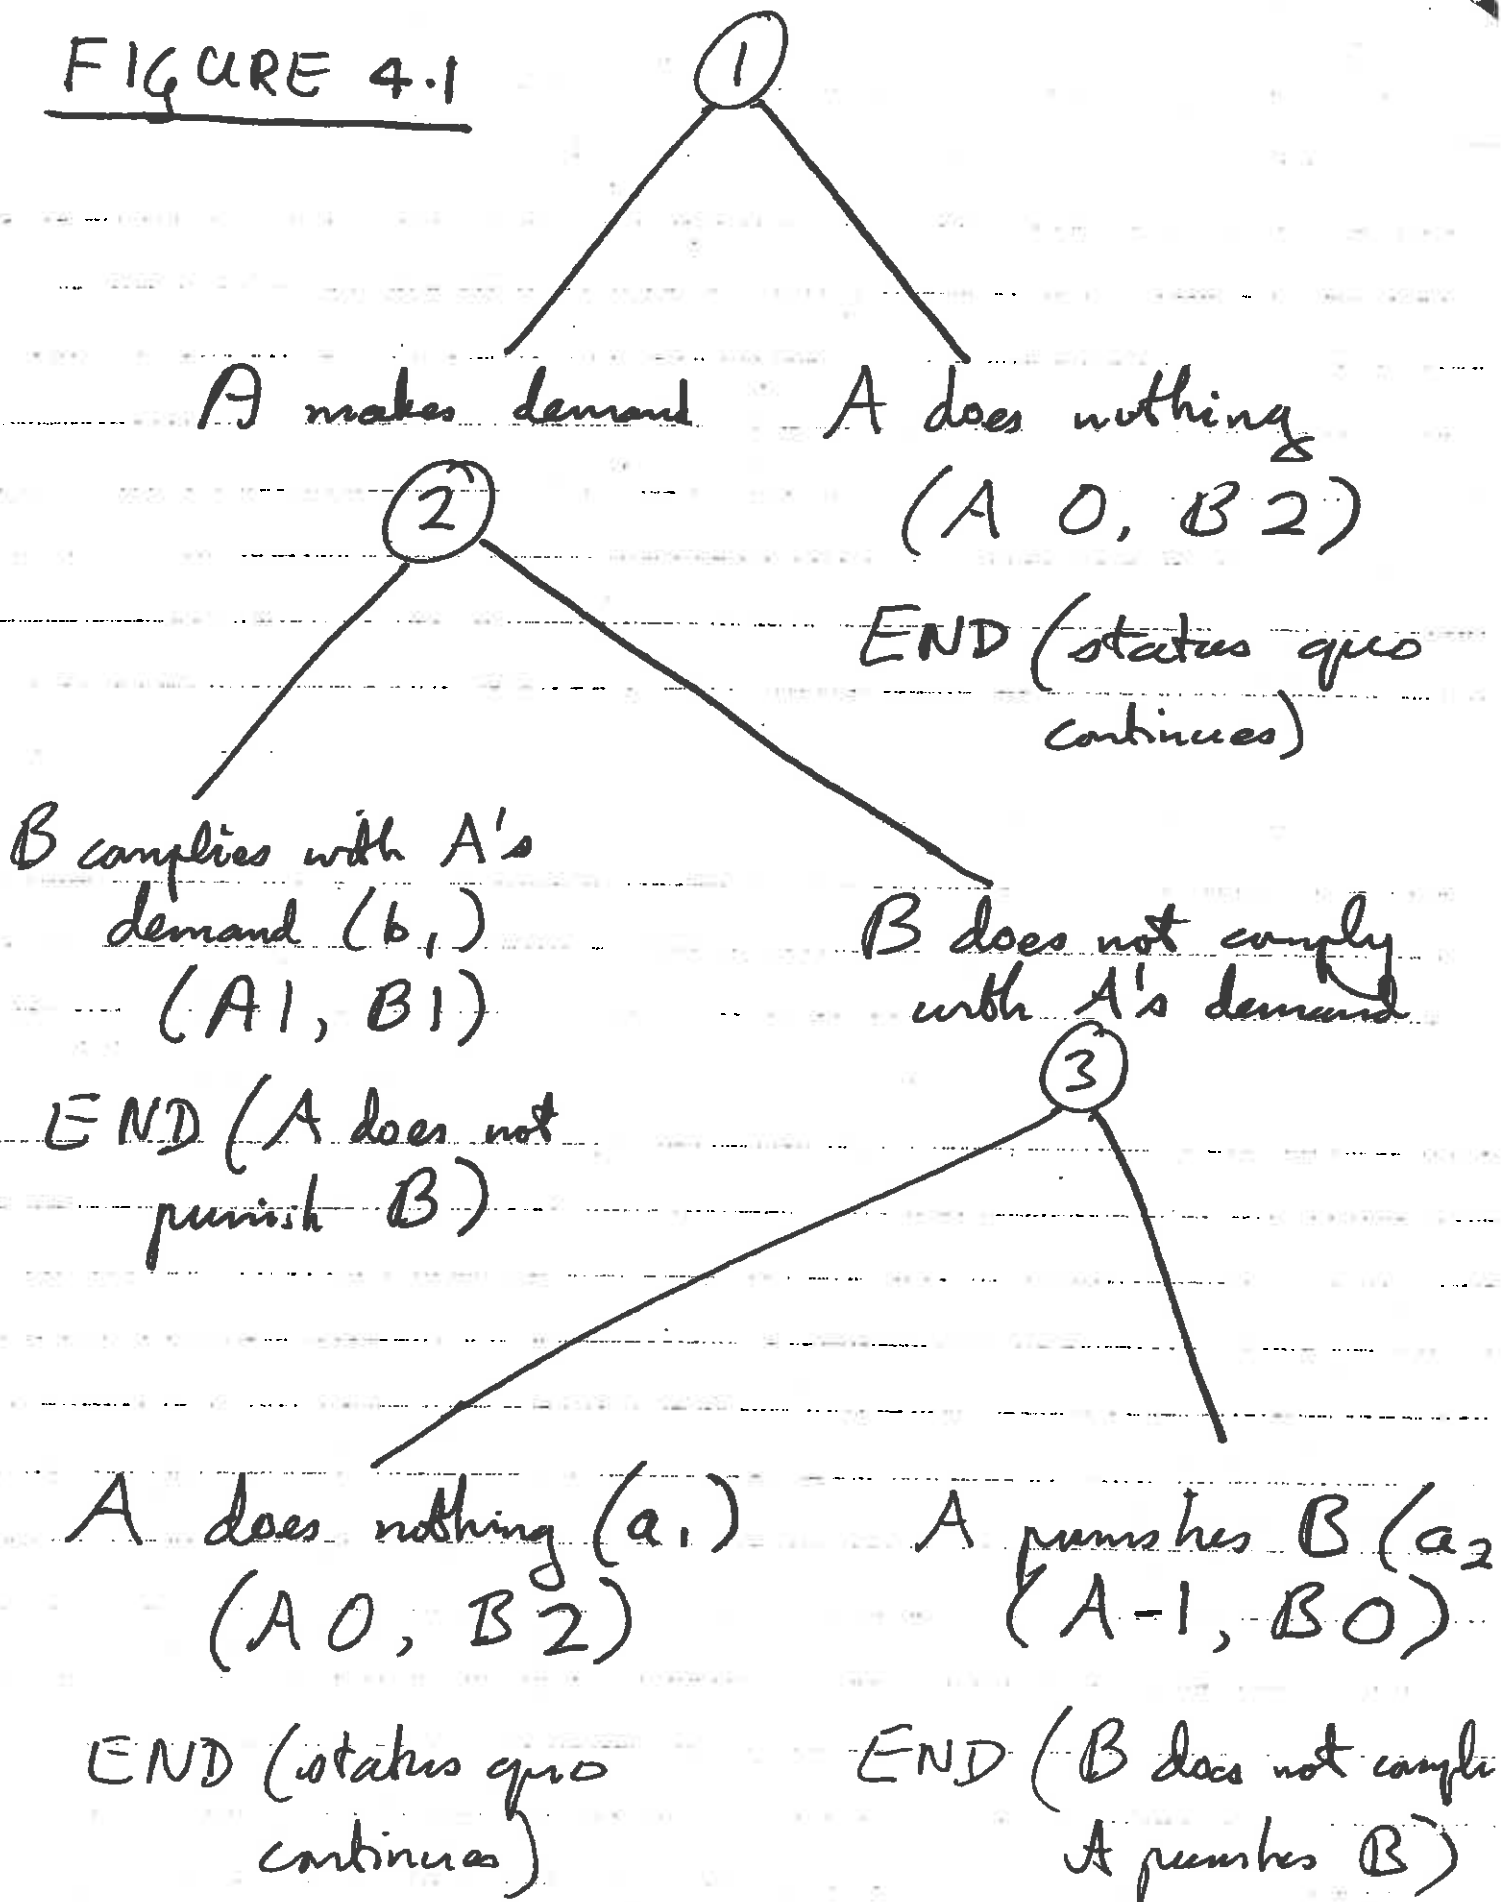 FIGURE 4.1
1
A makes demand
A does nothing
(A 0, B 2)
END (status quo
continues)
2
B complies with A's
demand (b₁)
(A1, B1)
END (A does not
punish B)
B does not comply
with A's demand
3
A does nothing (a₁)
(A 0, B 2)
END (status quo
continues)
A punishes B (a₂
(A-1, B0)
END (B does not compli
A punishes B)